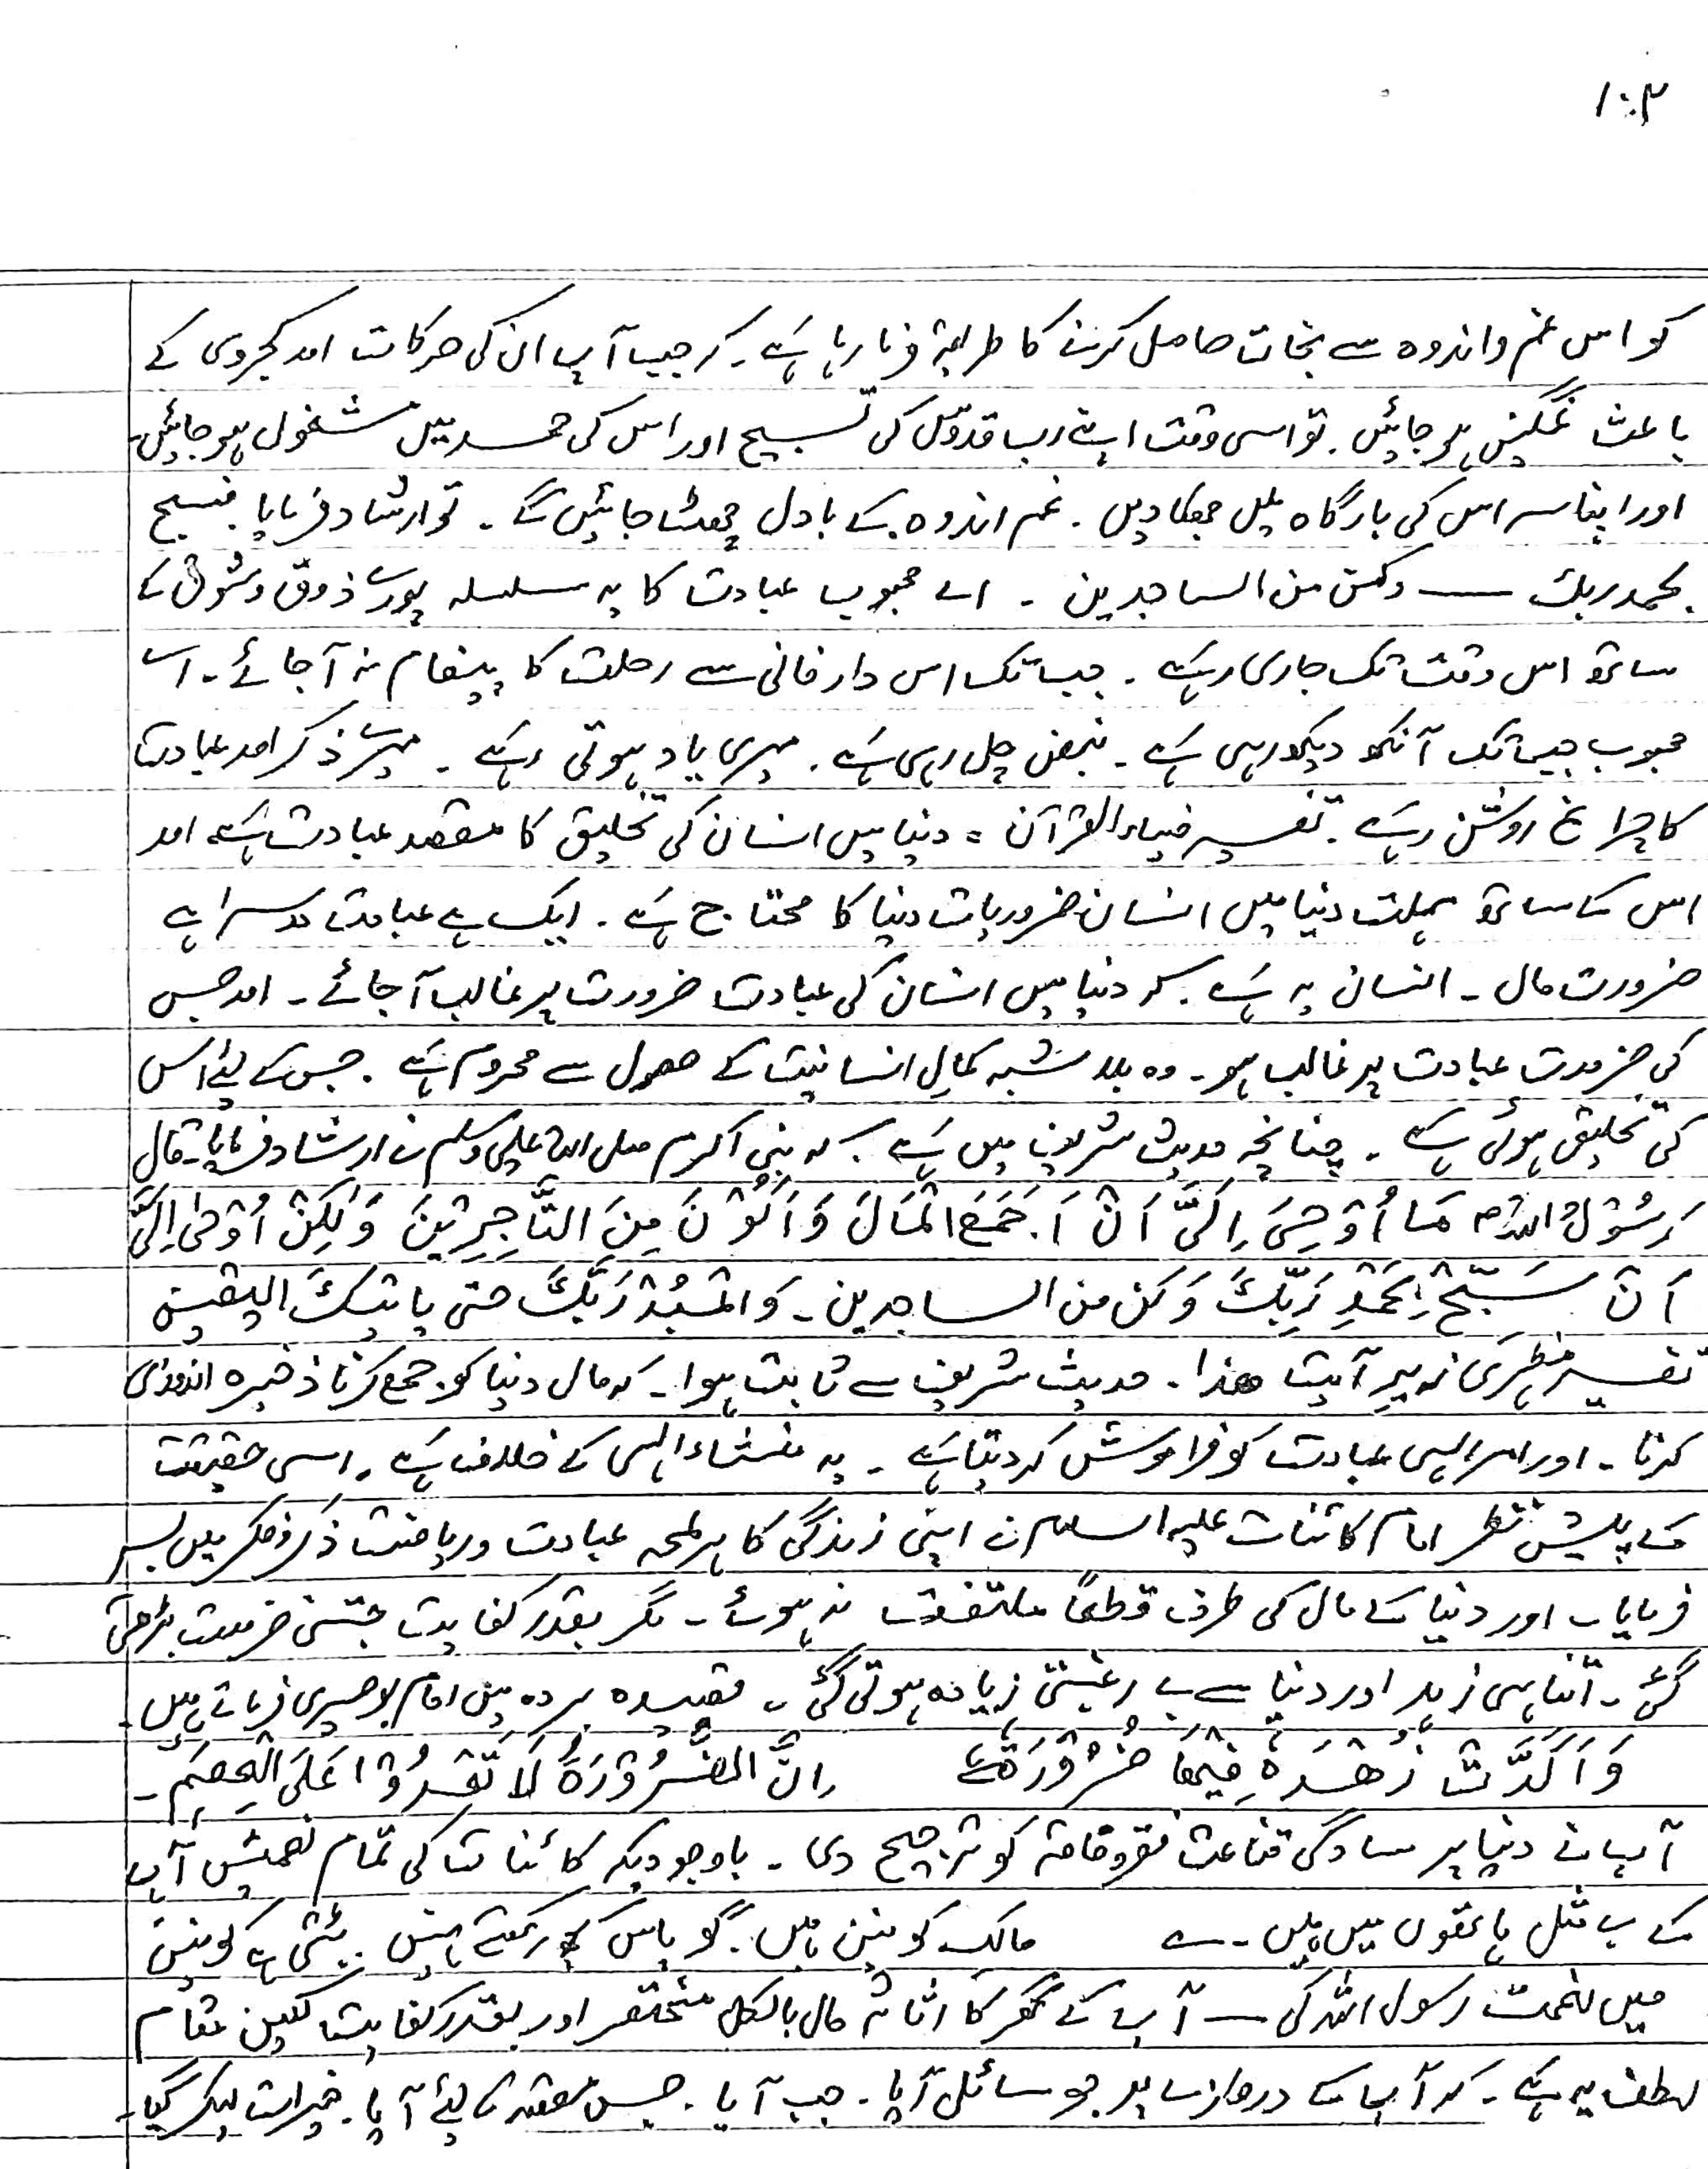 ۱۰۳
کو اس غم و اندوہ سے نجات حاصل کرنے کا طریقہ فرما رہا ہے۔ کہ جب آپ ان کی حرکات اور کجروی کے
باعث غمگین ہو جائیں۔ تو اسی وقت اپنے رب قدوس کی تسبیح اور اس کی حمد میں مشغول ہو جائیں۔
اور اپنا سر اس کی بارگاہ میں جھکا دیں۔ غم اندوہ کے بادل چھٹ جائیں گے۔ تو ارشاد فرمایا فسبح
بحمد ربک ـــ وکن من الساجدین۔ اے محبوب عبادت کا یہ سلسلہ پورے ذوق و شوق کے
ساتھ اس وقت تک جاری رہے۔ جب تک اس دار فانی سے رحلت کا پیغام نہ آ جائے۔ اے
محبوب جب تک آنکھ دیکھ رہی ہے۔ نبض چل رہی ہے۔ میری یاد ہوتی رہے۔ میرے ذکر اور عبادت
کا چراغ روشن رہے۔ تفسیر ضیاء القرآن = دنیا میں انسان کی تخلیق کا مقصد عبادت ہے اور
اس کے ساتھ مہلت دنیا میں انسان ضروریات دنیا کا محتاج ہے۔ ایک ہے عبادت دوسرا ہے
ضرورت مال۔ انسان یہ ہے۔ کہ دنیا میں انسان کی عبادت ضرورت پر غالب آ جائے۔ اور جس
کی ضرورت عبادت پر غالب ہو۔ وہ بلا شبہ کمالِ انسانیت کے حصول سے محروم ہے۔ جس کے لئے اس
کی تخلیق ہوئی ہے۔ چنانچہ حدیث شریف میں ہے۔ کہ نبی اکرم صلی اللہ علیہ وسلم نے ارشاد فرمایا۔ قال
رَسُوْلُ اللہِ مَا أُوْحِیَ اِلَیَّ اَنْ اَجْمَعَ الْمَالَ وَ اَکُوْنَ مِنَ التَّاجِرِیْنَ وَلٰکِنْ اُوْحٰی اِلَیَّ
اَنْ سَبِّحْ بِحَمْدِ رَبِّکَ وَ کُن من الساجدین۔ وَ اعْبُدْ رَبَّکَ حتی یاتیکَ الیقین
تفسیر مظہری زیرِ آیت ھذا۔ حدیث شریف سے ثابت ہوا۔ کہ مال دنیا کو جمع کرنا ذخیرہ اندوزی
کرنا۔ اور امر الٰہی عبادت کو فراموش کر دیتا ہے۔ یہ منشاء الٰہی کے خلاف ہے۔ اسی حقیقت
کے پیش نظر امام کائنات علیہ السلام نے اپنی زندگی کا ہر لمحہ عبادت و ریاضت ذکر و فکر میں بسر
فرمایا۔ اور دنیا کے مال کی طرف قطعاً ملتفت نہ ہوئے۔ مگر بقدر کفایت جتنی ضرورت بڑھتی
گئی۔ اتنا ہی زہد اور دنیا سے بے رغبتی زیادہ ہوتی گئی۔ قصیدہ بردہ میں امام بوصیری فرماتے ہیں۔
وَ اَکَّدَتْ زُھْدَہٗ فِیْھَا ضَرُوْرَتُہٗ اِنَّ الضَّرُوْرَۃَ لَا تَعْدُوْا عَلَی الْعِصَمِ۔
آپ نے دنیا پر سادگی قناعت فقر و فاقہ کو ترجیح دی۔ باوجودیکہ کائنات کی تمام نعمتیں آپ
کے بے مثل ہاتھوں میں ہیں۔ ؎ مالک کونین ہیں۔ گو پاس کچھ رکھتے نہیں۔ بٹتی ہے کونین
میں نعمت رسول اللہ کی ـــ آپ کے گھر کا اثاثہ مال بالکل مختصر اور بقدر کفایت لیکن مقام
لطف یہ ہے۔ کہ آپ کے دروازے پر جو سائل آیا۔ جب آیا۔ جس مقصد کے لئے آیا۔ خیرات لیکر گیا۔